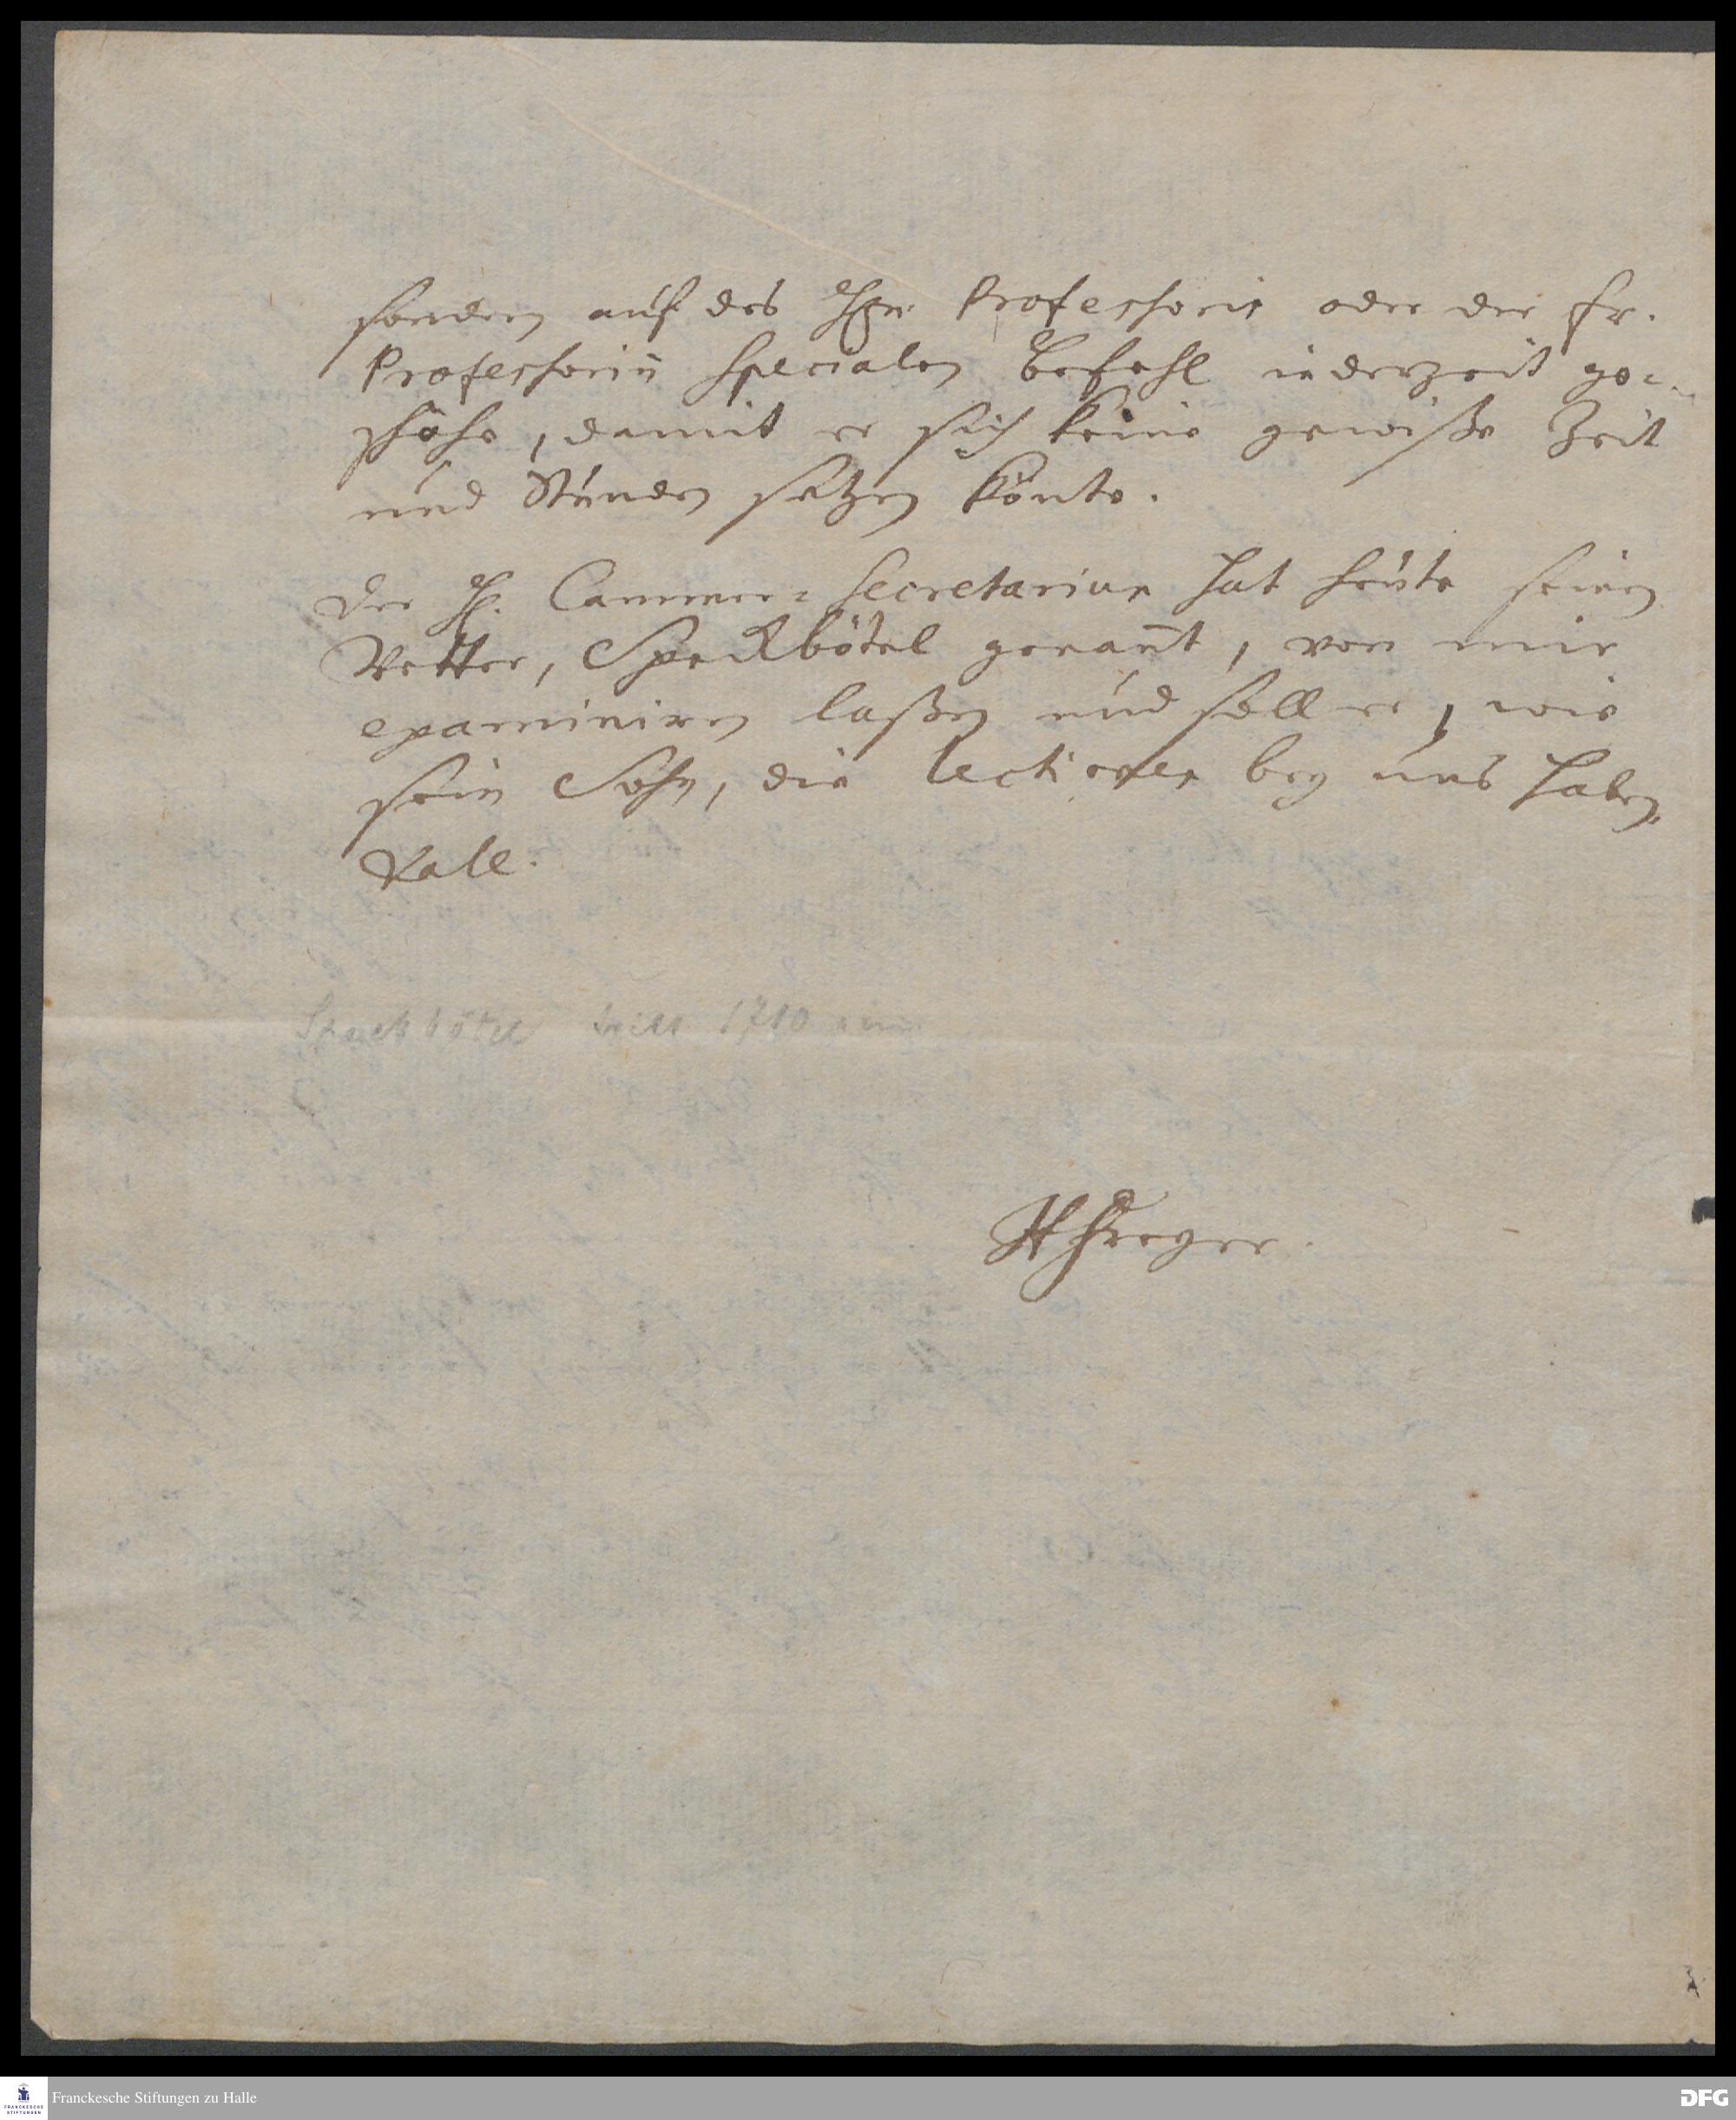 sondern auf des Hhrn Professoris oder der Fr.
Professorin specialen Befehl iederzeit ge=
schähe, damit er sich keine gewiße Zeit
und Stunden setzen könte.
Der H. Cammer=Secretarius hat heute seinen
Vetter, Speckbötel genan̄t, von mir
examiniren laßen und soll er, wie
sein Sohn, die lectiones bey uns haben.
Vale.
Speckbötel 1710
HFreyer.
Franckesche Stiftungen zu Halle
DFG